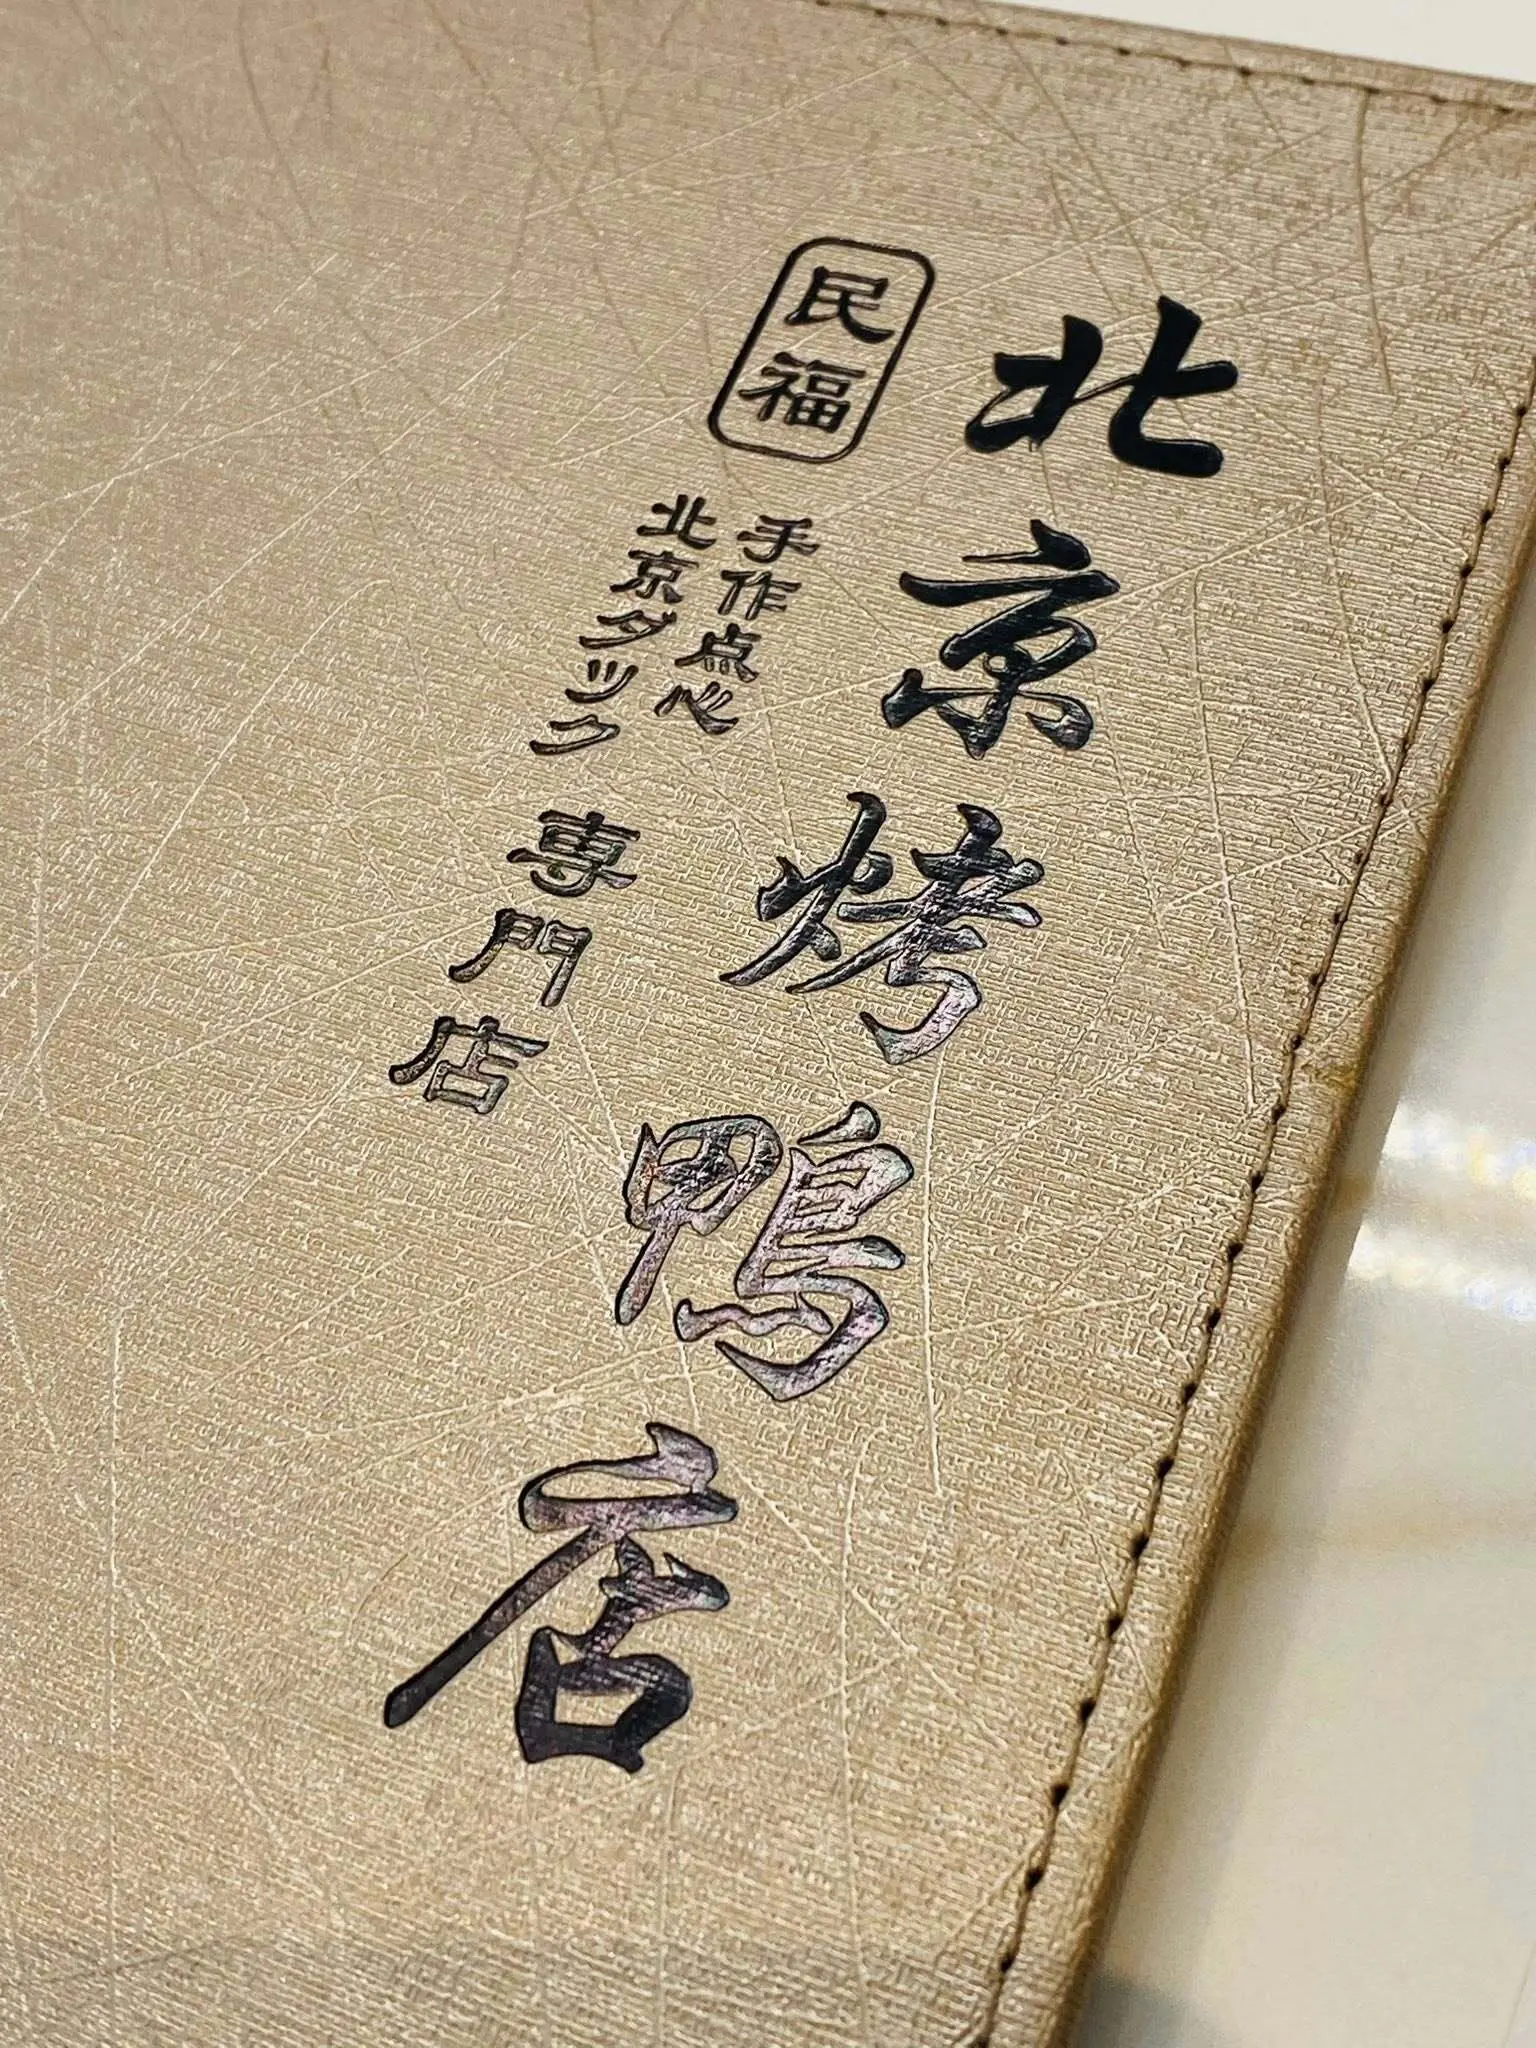 北京烤鴨店
民福
手作点心
北京ダック
専門店